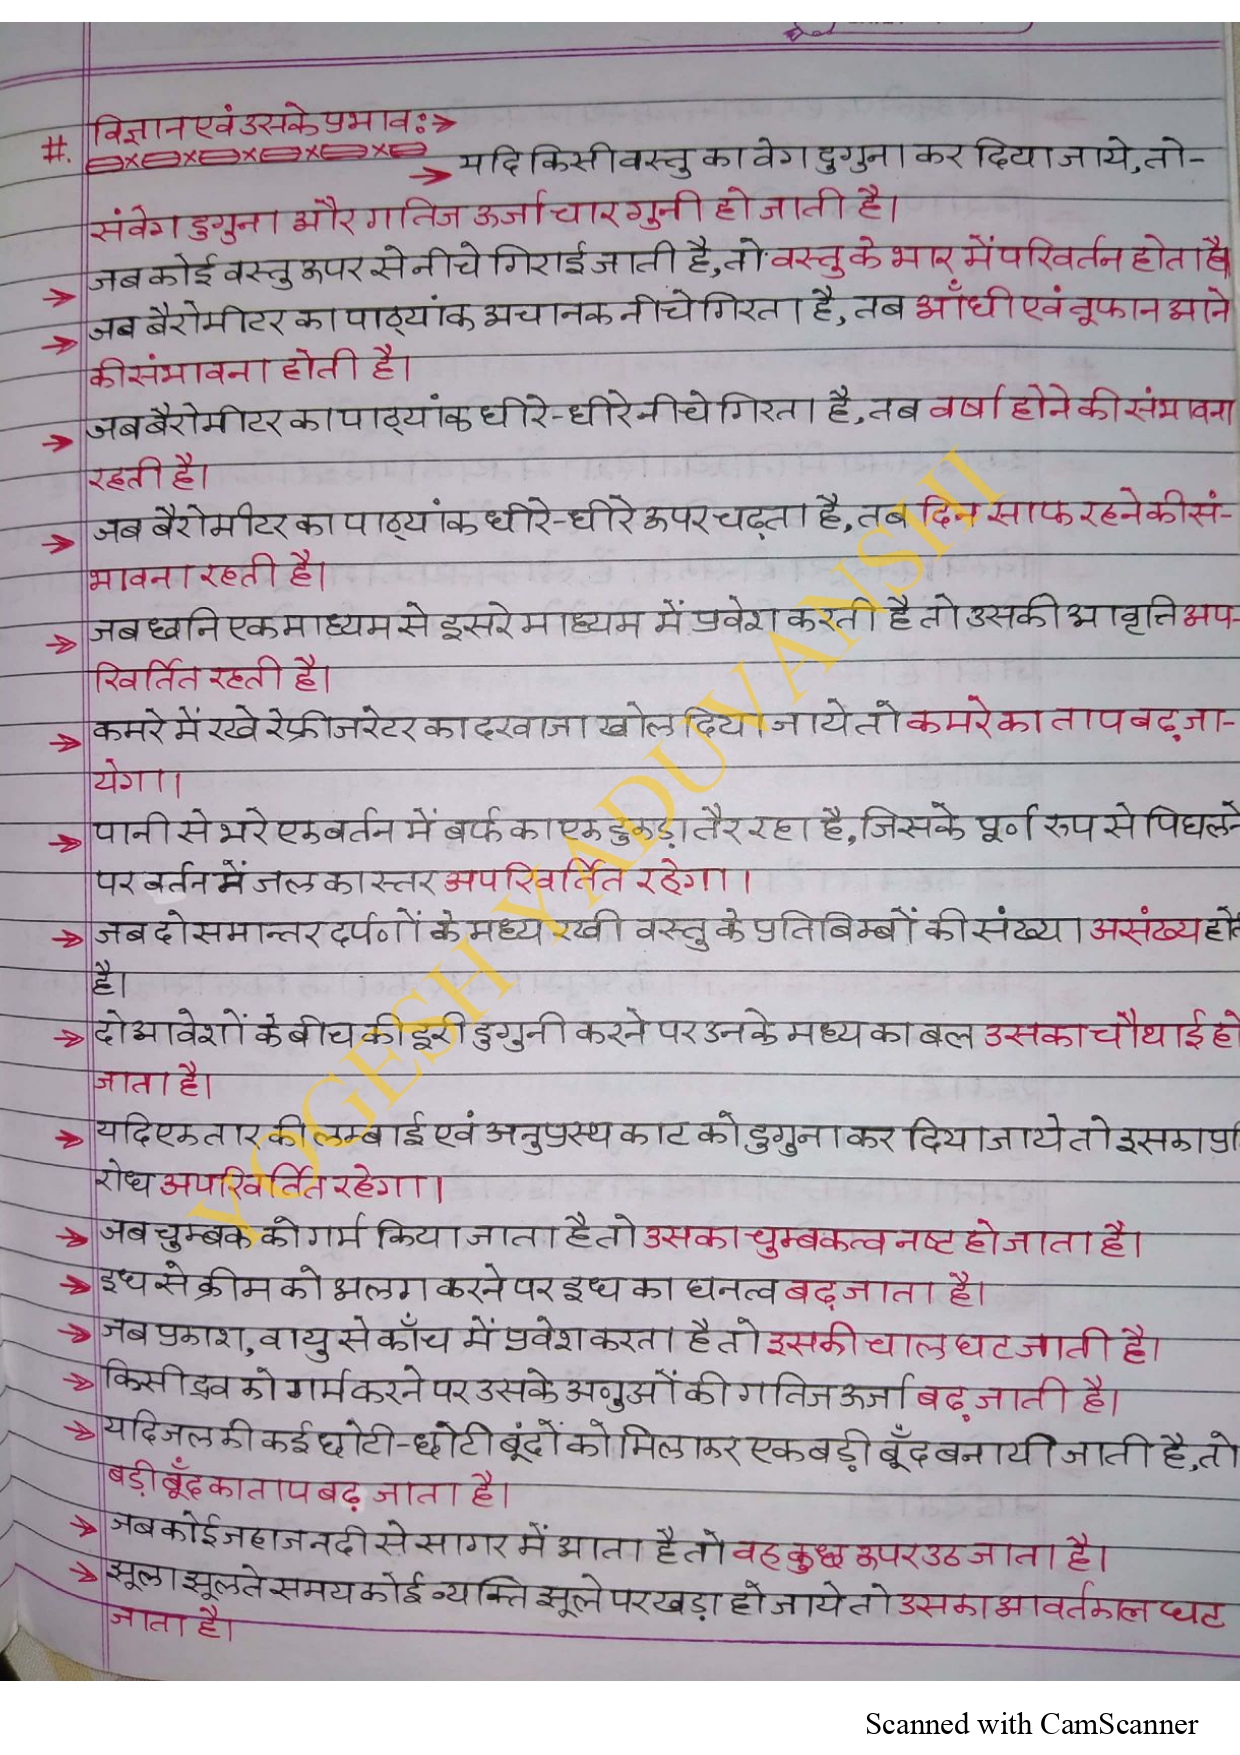 #. विज्ञान एवं उसके प्रभाव:→
→ यदि किसी वस्तु का वेग दुगुना कर दिया जाये, तो-
संवेग दुगुना और गतिज ऊर्जा चार गुनी हो जाती है।
→ जब कोई वस्तु ऊपर से नीचे गिराई जाती है, तो वस्तु के भार में परिवर्तन होता है।
→ जब बैरोमीटर का पाठ्यांक अचानक नीचे गिरता है, तब आँधी एवं तूफान आने
की संभावना होती है।
→ जब बैरोमीटर का पाठ्यांक धीरे-धीरे नीचे गिरता है, तब वर्षा होने की संभावना
रहती है।
→ जब बैरोमीटर का पाठ्यांक धीरे-धीरे ऊपर चढ़ता है, तब दिन साफ रहने की सं-
भावना रहती है।
→ जब ध्वनि एक माध्यम से दूसरे माध्यम में प्रवेश करती है तो उसकी आवृत्ति अप-
रिवर्तित रहती है।
→ कमरे में रखे रेफ्रीजरेटर का दरवाजा खोल दिया जाये तो कमरे का ताप बढ़ जा-
येगा।
→ पानी से भरे एक बर्तन में बर्फ का एक टुकड़ा तैर रहा है, जिसके पूर्ण रुप से पिघलने
पर बर्तन में जल का स्तर अपरिवर्तित रहेगा।
→ जब दो समान्तर दर्पणों के मध्य रखी वस्तु के प्रतिबिम्बों की संख्या असंख्य होत
है।
→ दो आवेशों के बीच की दूरी दुगुनी करने पर उनके मध्य का बल उसका चौथाई हो
जाता है।
→ यदि एक तार की लम्बाई एवं अनुप्रस्थ काट को दुगुना कर दिया जाये तो इसका प्रति
रोध अपरिवर्तित रहेगा।
→ जब चुम्बक को गर्म किया जाता है तो उसका चुम्बकत्व नष्ट हो जाता है।
→ दूध से क्रीम को अलग करने पर दूध का घनत्व बढ़ जाता है।
→ जब प्रकाश, वायु से काँच में प्रवेश करता है तो इसकी चाल घट जाती है।
→ किसी द्रव को गर्म करने पर उसके अणुओं की गतिज ऊर्जा बढ़ जाती है।
→ यदि जल की कई छोटी-छोटी बूंदों को मिलाकर एक बड़ी बूँद बनायी जाती है, तो
बड़ी बूँद का ताप बढ़ जाता है।
→ जब कोई जहाज नदी से सागर में आता है तो वह कुछ ऊपर उठ जाता है।
→ झूला झूलते समय कोई व्यक्ति झूले पर खड़ा हो जाये तो उसका आवर्तकाल घट
जाता है।
YOGESH YADUVANSHI
Scanned with CamScanner